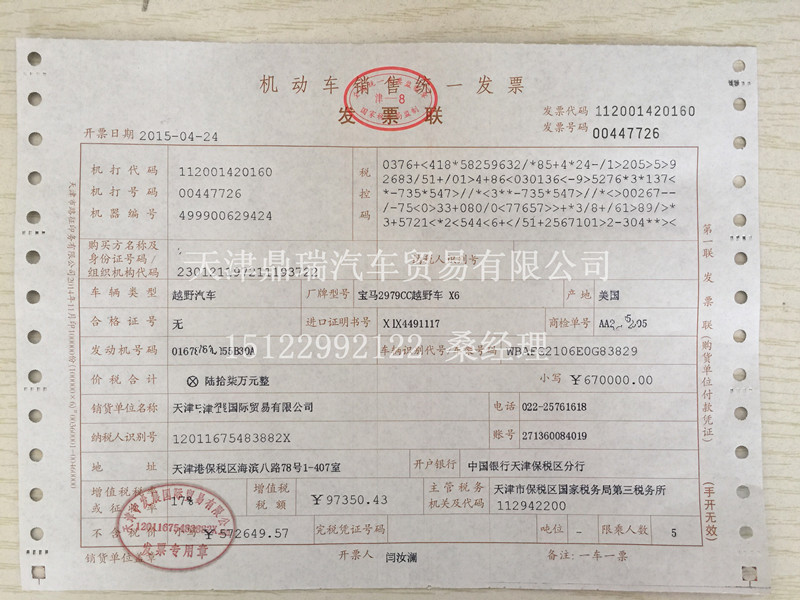 机动车销售统一发票
发票联
津—8
开票日期 2015-04-24
发票代码 112001420160
发票号码 00447726
机打代码 112001420160
机打号码 00447726
机器编号 499900629424
税控码
0376+<418*58259632/*85+4*24-/1>205>5>9
2683/51+/01>4+86<030136-<9>5276*3*137<
*-735*547>//*<3**-735*547>//*<>00267--
/-75<0>33+080/0<77657>>+*3/8+/61>89/>*
3+5721<*2<544<6+</51+2567101>2-304**><
购买方名称及
身份证号码/
组织机构代码
230121197211193722
天津鼎瑞汽车贸易有限公司
车辆类型 越野汽车 厂牌型号 宝马2979CC越野车 X6 产地 美国
合格证号 无 进口证明书号 XIX4491117 商检单号
15122992122 桑经理
发动机号码 车辆识别代号/车架号码
价税合计 ⊗ 陆拾柒万元整 小写 ￥670000.00
销货单位名称 国际贸易有限公司 电话 022-25761618
纳税人识别号 12011675483882X 账号 271360084019
地址 天津港保税区海滨八路78号1-407室 开户银行 中国银行天津保税区分行
增值税税率或征收率 17% 增值税税额 ￥97350.43 主管税务机关及代码 天津市保税区国家税务局第三税务所
112942200
不含税价 小写 ￥572649.57 完税凭证号码 吨位 - 限乘人数 5
12011675483882X
发票专用章
销货单位盖章 开票人 闫汝澜 备注:一车一票
第一联 发票联(购货单位付款凭证)
(手开无效)